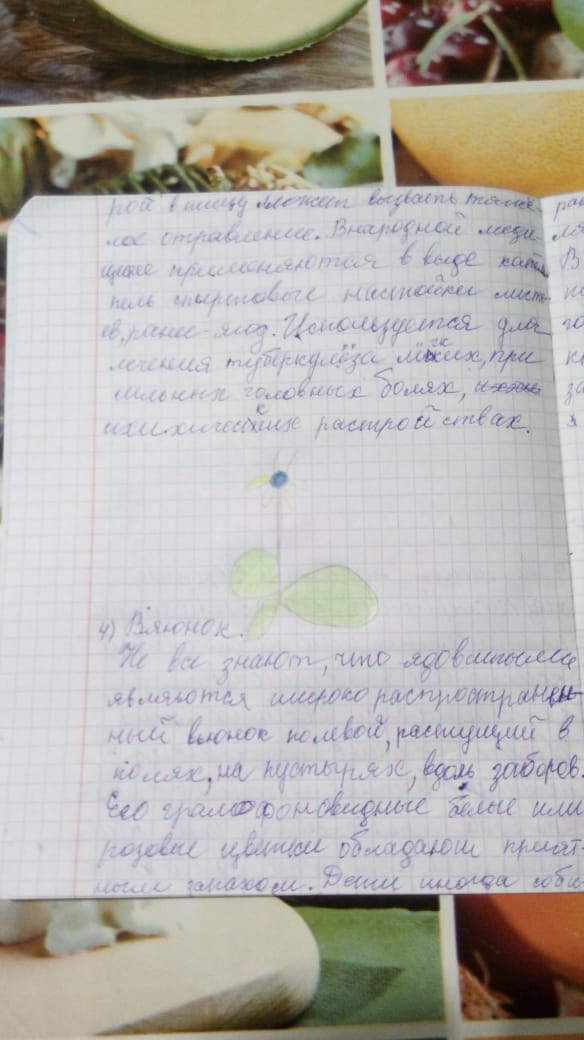 рой в пищу может вызвать тяже-
лое отравление. В народной меди-
цине применяются в виде
пель спиртовые настойки листь-
ев, ранее-ягод. Используется для
лечения туберкулёза лёгких, при
сильных головных болях,
психических растройствах.
4) Вьюнок.
Не все знают, что ядовитыми
являются широко распространен-
ный вьюнок полевой, растущий в
полях, на пустырях, вдоль заборов.
Его грамофоновидные белые или
розовые цветки обладают прият-
ным запахом. Дети иногда соби-
ра
В
за